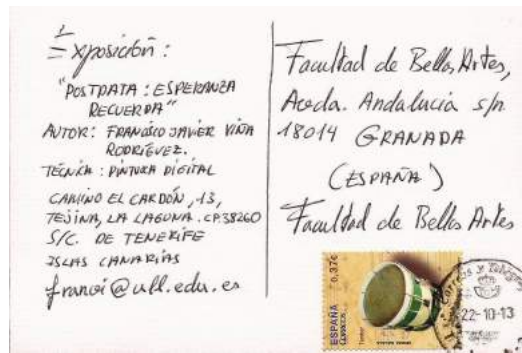 Exposición:
"POSTDATA: ESPERANZA
RECUERDA"
AUTOR: FRANCISCO JAVIER VIÑA
RODRÍGUEZ.
TÉCNICA: PINTURA DIGITAL
CAMINO EL CARDÓN, 13,
TEJINA, LA LAGUNA. CP.38260
S/C. DE TENERIFE
ISLAS CANARIAS
franvi@ull.edu.es
Facultad de Bellas Artes,
Avda. Andalucia s/n
18014 GRANADA
(ESPAÑA)
Facultad de Bellas Artes
ESPAÑA
CORREOS
0,37€
Tambor
Correos y
22-10-13